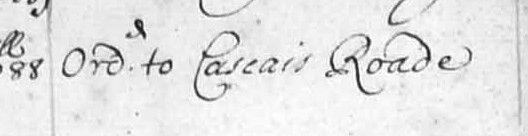 88 Ord.d to Cascais Roade